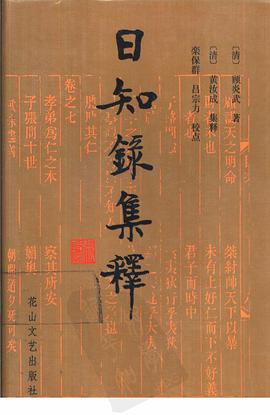 〔清〕顾炎武 著
〔清〕黄汝成 集释
栾保群 吕宗力 校点
日知錄集釋
花山文艺出版社
桀紂帥天下以暴
未有上好仁而下不好義
君子而時中
天之明命
察其所安
媚奧
朝聞道夕死可矣
卷之七
孝弟爲仁之本
子張問十世